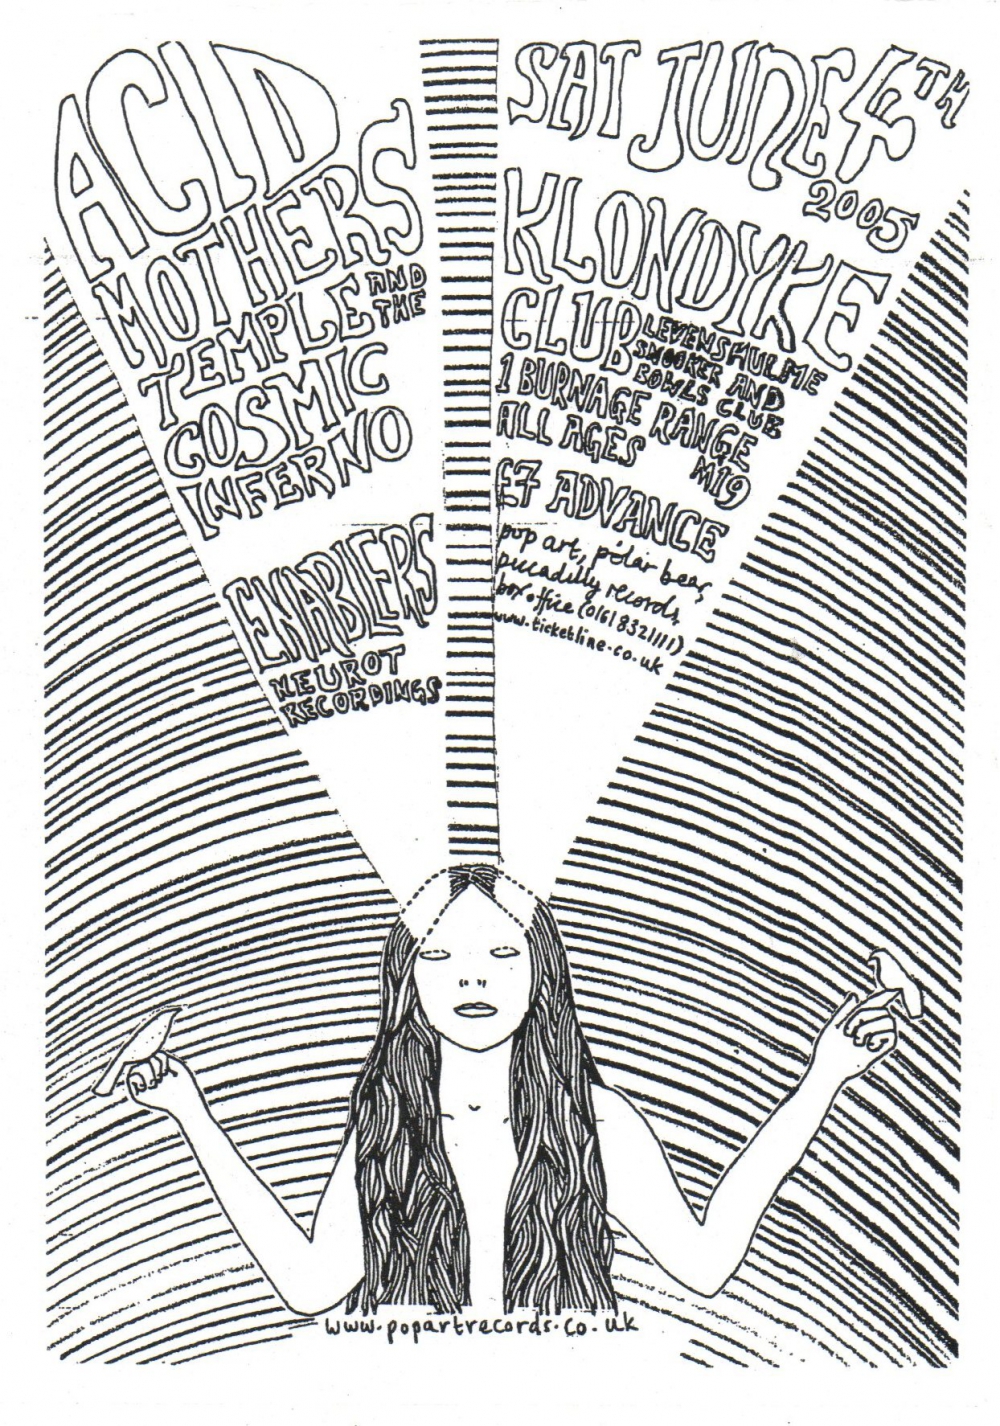 ACID
MOTHERS
TEMPLE AND THE
COSMIC
INFERNO
ENABLERS
NEUROT
RECORDINGS
SAT JUNE 4TH
2005
KLONDYKE
CLUB LEVENSHULME
SNOOKER AND
BOWLS CLUB
1 BURNAGE RANGE
ALL AGES M19
£7 ADVANCE
pop art, polar bear,
piccadilly records,
box office (0161 8321111)
www.ticketline.co.uk
www.popartrecords.co.uk